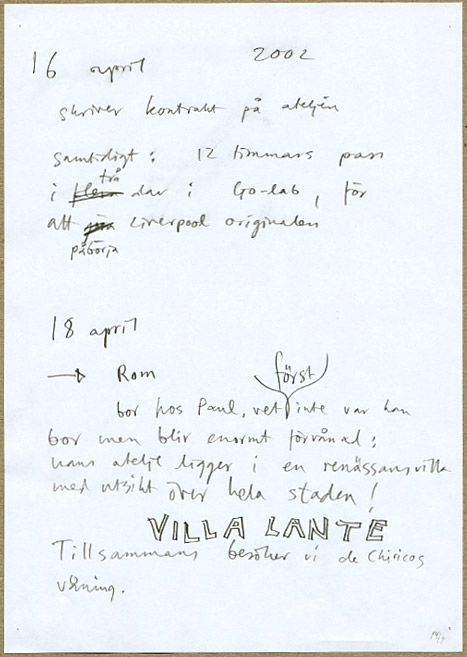 16 april 2002
skriver kontrakt på ateljén
samtidigt: 12 timmars pass
två
i dar i Go-lab, för
att Liverpool originalen
påbörja
18 april
→ Rom
först
bor hos Paul, vet inte var han
bor men blir enormt förvånad;
hans ateljé ligger i en renässansvilla
med utsikt över hela staden!
VILLA LANTE
Tillsammans besöker vi de Chiricos
våning.